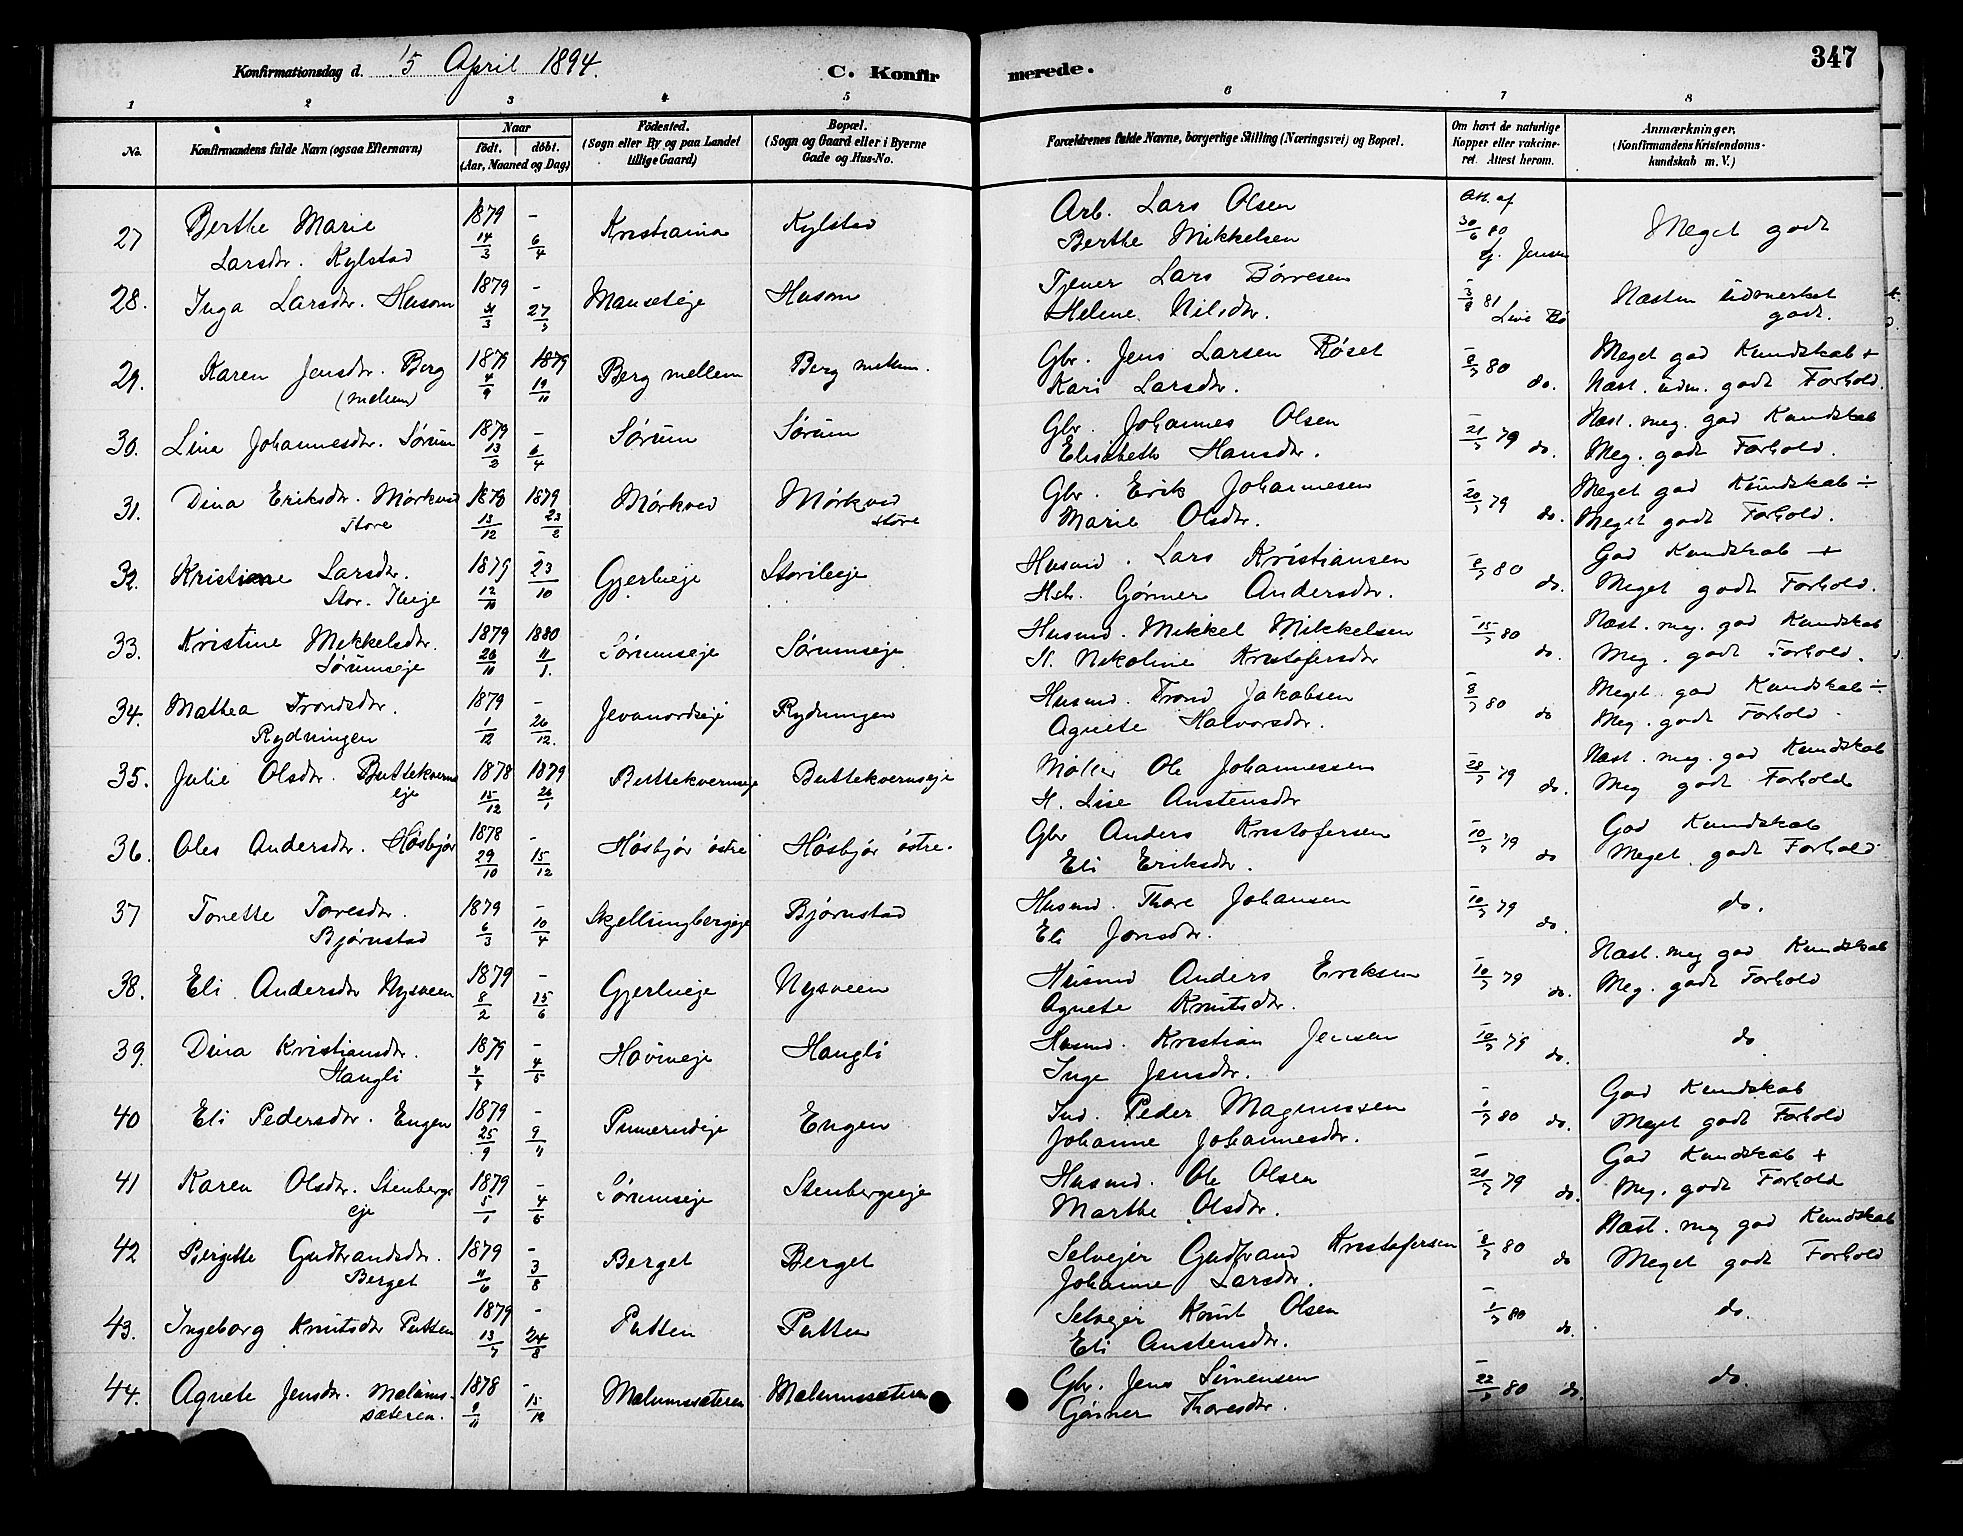 Konfirmationsdag d. 15 April 1894.
C. Konfirmerede.
347
1 2 3 4 5 6 7 8
No. Konfirmandens fulde Navn (ogsaa Efternavn) Naar født. døbt. (Aar, Maaned og Dag) Fødested. (Sogn eller By og paa Landet tillige Gaard) Bopæl. (Sogn og Gaard eller i Byerne Gade og Hus-No. Forældrenes fulde Navne, borgerlige Stilling (Næringsvei) og Bopæl. Om havt de naturlige Kopper eller vakcineret. Attest herom. Anmærkninger. (Konfirmandens Kristendomskundskab m. V.)
27 Berthe Marie Larsdtr. Kylstad 1879 14/3 - 6/4 Kristiania Kylstad Arb. Lars Olsen Berthe Mikkelsen Att. af 30/6 80 Jensen Meget godt
28. Inga Larsdtr. Husom 1879 31/3 - 27/ Husom Tjener Lars Børresen Helene Nilsdtr. 81 Næsten udmerket godt.
29. Karen Jensdtr. Berg (mellem) 1879 4/9 1879 19/10 Berg mellem Berg mellem. Gbr. Jens Larsen Røset Kari Larsdtr. 80 do. Meget god Kundskab + Næst. udm. godt Forhold.
30. Lina Johannesdtr. Sørum 1879 13/2 - 6/4 Sørum Sørum Gbr. Johannes Olsen Elisabeth Hansdtr. 79 do. Næst. meg. god Kundskab Meg. godt Forhold.
31. Dina Eriksdtr. Mørkved store 1878 13/12 1879 23/2 Mørkved Mørkved store Gbr. Erik Johannesen Marie Olsdtr. 79 do. Meget god Kundskab ÷ Meget godt Forhold.
32. Kristiane Larsdtr. 1879 12/10 - 23/10 Gjerlueje Husmd. Lars Kristiansen Gørner Andersdtr. 80 do. God Kundskab + Meget godt Forhold.
33. Kristine Mekkelsdtr. Sørumseje 1879 26/11 1880 11/1. Sørumseje Sørumseje Husmd. Mikkel Mikkelsen H. Nikoline Kristofersdtr 15/7 80 do. Næst. meg. god Kundskab Meg. godt Forhold.
34. Mathea Trondsdtr. Rydningen 1879 1/12 - 26/12. Rydningen Husmd Trond Jakobsen Agnete Halvorsdtr. 80 do Meget god Kundskab ÷ Meg. godt Forhold.
35. Julie Olsdtr. Buttekvernseje 1878 15/12 1879 26/1 Buttekvernseje Buttekvernseje Møller Ole Johannessen H. Lise Austensdtr 28/7 79 do. Næst. meg. god Kundskab Meg godt Forhold
36. Oles Andersdtr. Høsbjør 1878 29/10 - 15/12 Høsbjør østre Høsbjør østre. Gbr Anders Kristofersen Eli Eriksdtr. 10/7 79 do God Kundskab Meget godt Forhold
37 Tonette Toresdtr. Bjørnstad 1879 6/3 - 10/4 Bjørnstad Husmd. Thore Johansen Eli Jonsdtr. 10/7 79 do. do.
38. Eli Andersdtr Nysveen 1879 8/2 - 15/6 Gjerlueje Nysveen Husmd Anders Eriksen Agnete Knutsdtr. 10/7 79 do. Næst. meg god Kundskab Meg. godt Forhold
39. Dina Kristiansdtr. Haugli 1879 - 4/5 Haugli Husmd. Kristian Jensen Inge Jensdtr. 10/7 79 do. do
40 Eli Pedersdtr. Engen 1879 25/9 - 9/11 Engen Ind. Peder Magnussen Johanne Johannesdtr. 1/7 80 do. God Kundskab Meget godt Forhold
41 Karen Olsdtr. Stenbergseje 1879 5/1 - 4/5 Sørumseje Stenbergseje Husmd. Ole Olsen Marthe Olsdtr. 79 do. God Kundskab + Meg. godt Forhold
42 Bergitte Gudbrandsdtr. Berget 1879 11/6 - 3/8 Berget Berget Selvejer Gudbrand Kristofersen Johanne Larsdtr. 80 do Næst. meg god Kundskab Meget godt Forhold
43. Ingeborg Knutsdtr Putten 1879 13/7 - 24/8 Putten Putten Selvejer Knut Olsen Eli Austensdtr. 1/7 80 do. do.
44. Agnete Jensdtr. Malumssæteren. 1878 - 15/12 Malumssæteren Malumssæteren Gbr. Jens Simensen Gørner Thoresdtr. 80 do. do.